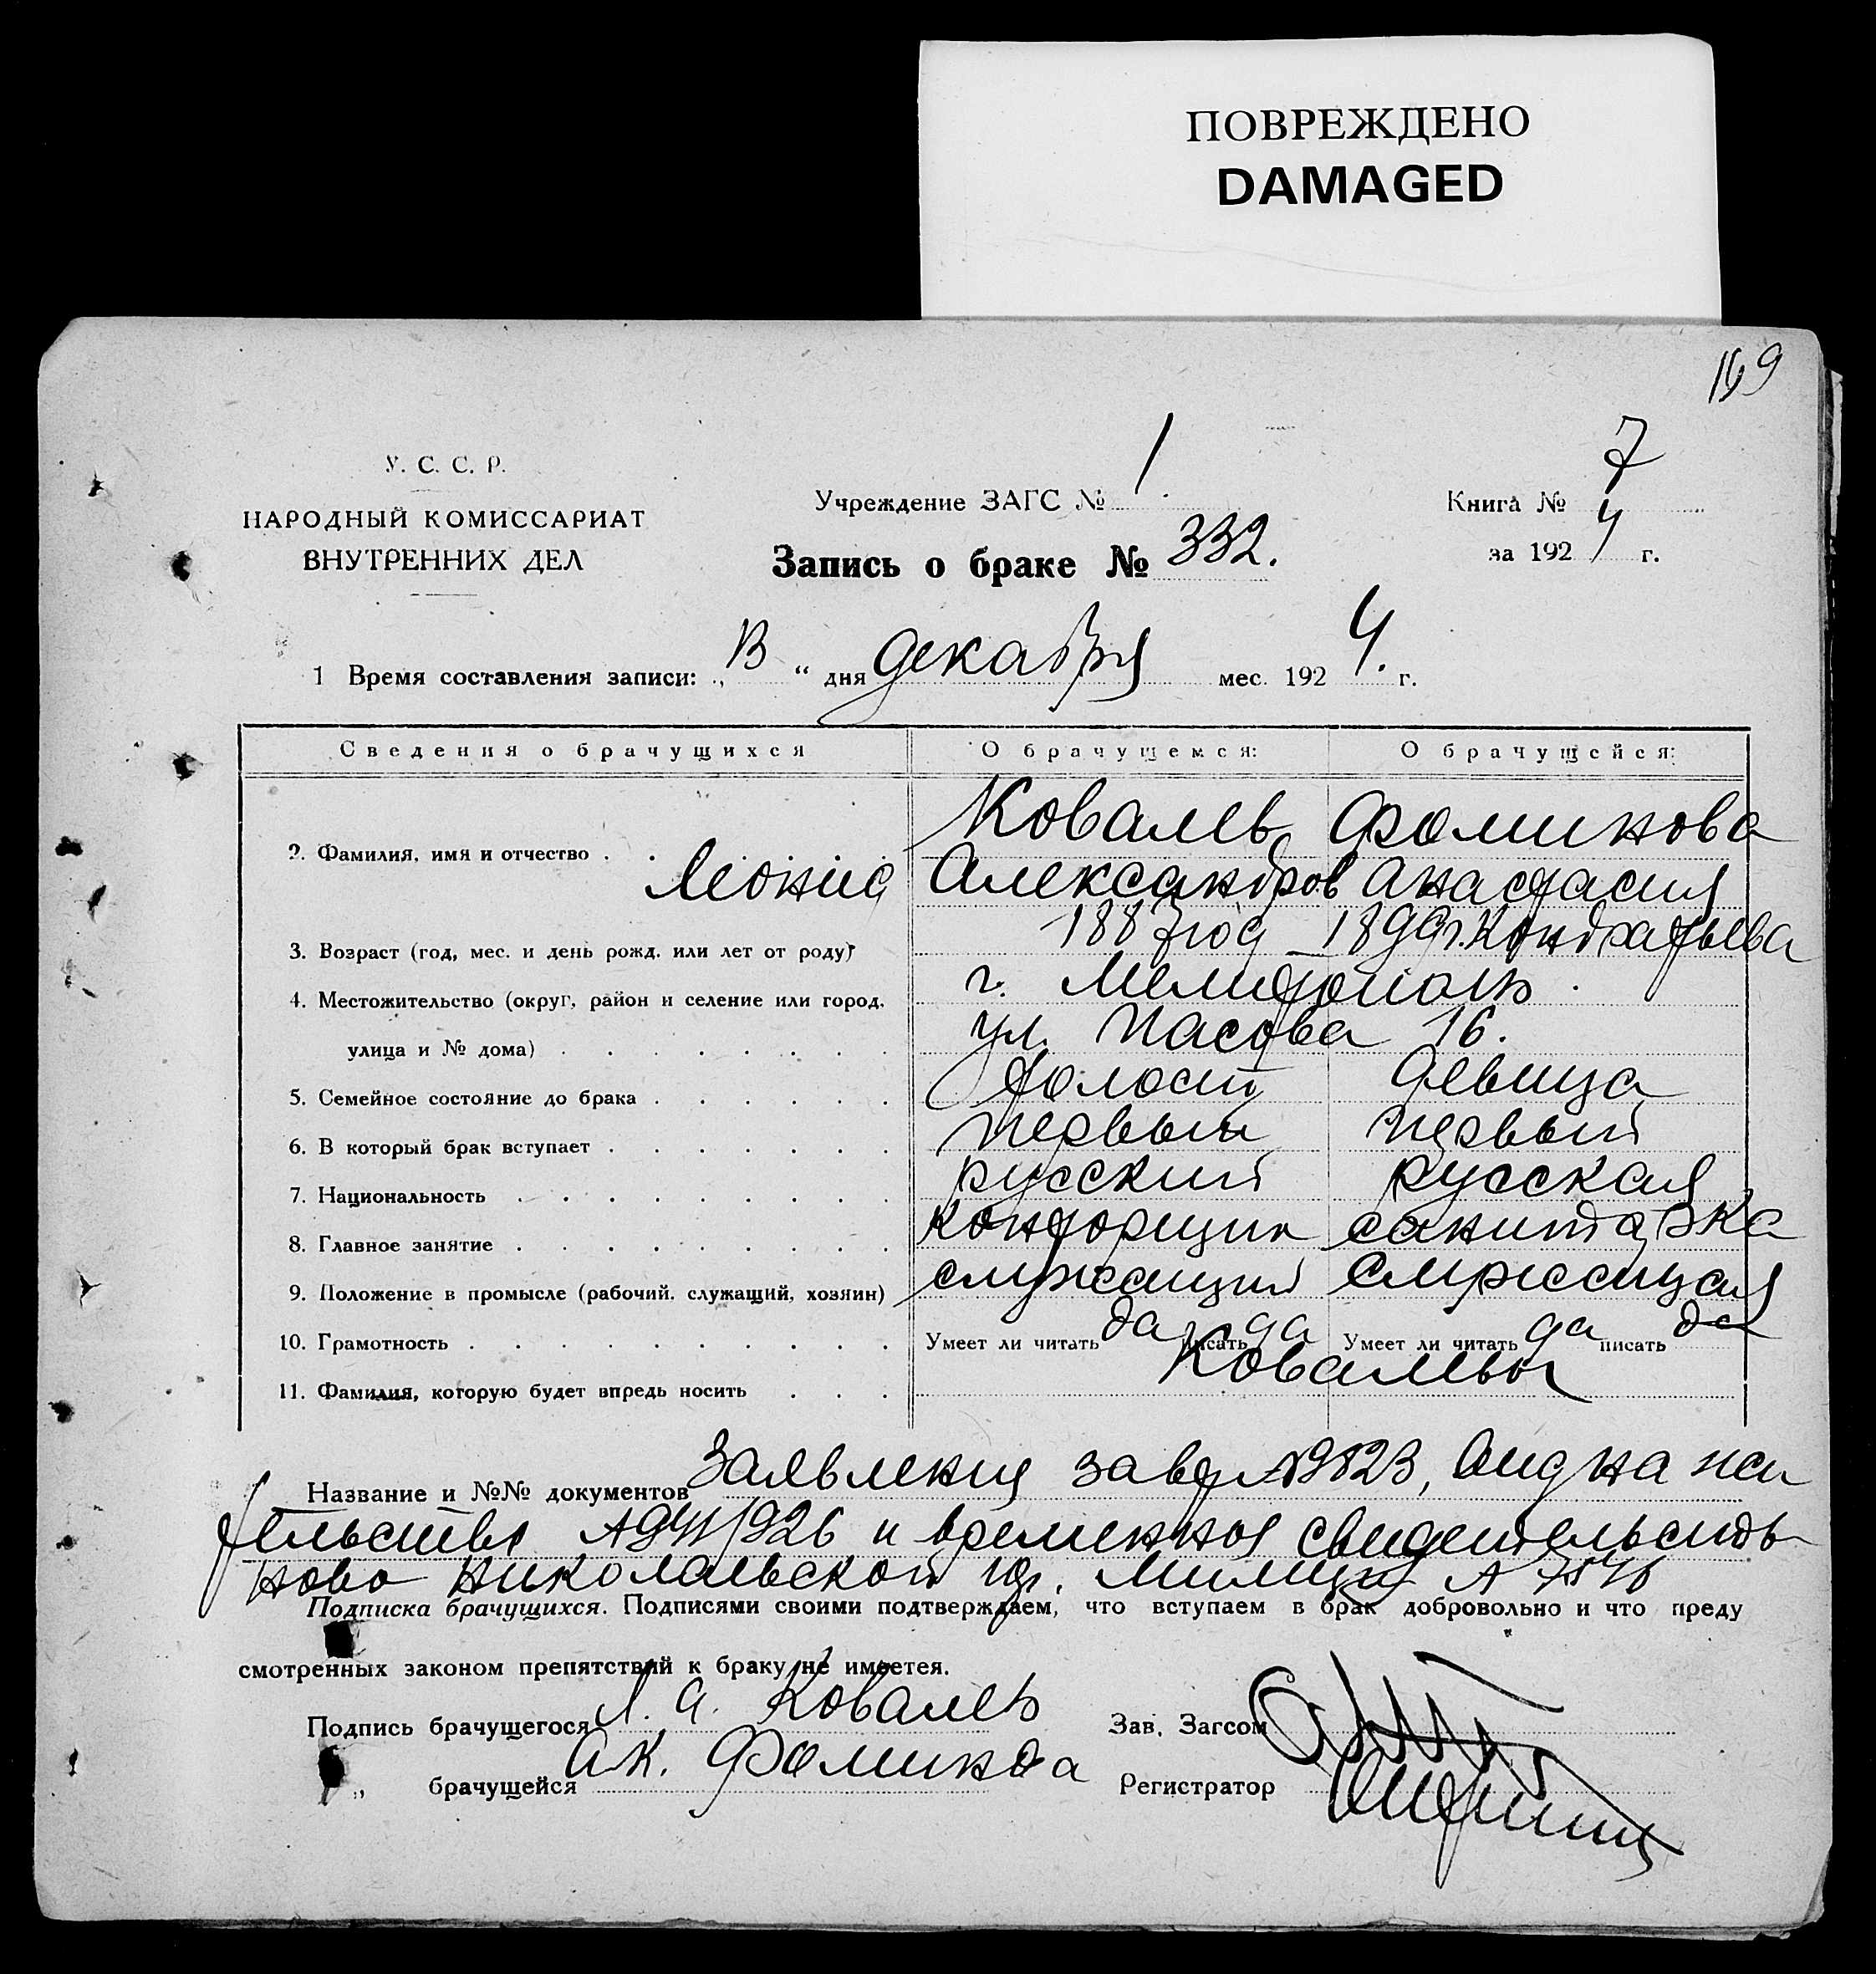 ПОВРЕЖДЕНО
DAMAGED
У. С. С. Р.
НАРОДНЫЙ КОМИССАРИАТ
ВНУТРЕННИХ ДЕЛ
Учреждение ЗАГС № 1.
Книга № 7
за 1924 г.
Запись о браке № 332.
1 Время составления записи: „ “ дня декабря мес. 1924. г.
Сведения о брачущихся О брачущемся: О брачущейся:
2. Фамилия, имя и отчество . . Ковалев Фоминова
Леонид Александров Анастасия
3. Возраст (год, мес. и день рожд. или лет от роду) 1887 год 1899 г. Кондратьева
4. Местожительство (округ, район и селение или город, г. Мелитополь.
улица и № дома) . . . . . . . ул. 16.
5. Семейное состояние до брака . . . . . . холост девица
6. В который брак вступает . . . . . . . первый первый
7. Национальность . . . . . . . . . русский русская
8. Главное занятие . . . . . . . . . конторщик санитарка
9. Положение в промысле (рабочий, служащий, хозяин) служащий служащая
10. Грамотность . . . . . . . . . . Умеет ли читать да писать да Умеет ли читать да писать да
11. Фамилия, которую будет впредь носить . . . Ковалевы
Название и №№ документов Заявления
и временное
Ново Николаевской гор. Милиции
Подписка брачущихся. Подписями своими подтверждаем, что вступаем в брак добровольно и что преду
смотренных законом препятствий к браку не имеется.
Подпись брачущегося Л. А. Ковалев Зав. Загсом
„ брачущейся А. К. Фоминова Регистратор